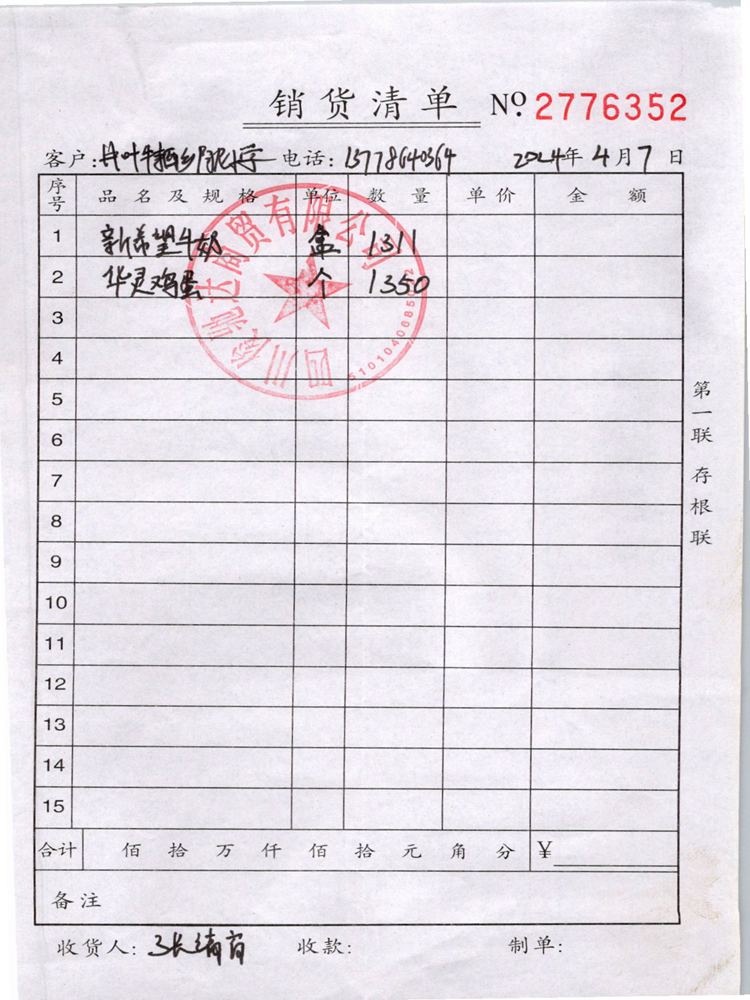 销货清单 No. 2776352
客户: 小学 电话: 13778640364 2024年4月7日
序号 品名及规格 单位 数量 单价 金额
1 新希望牛奶 盒 1311
2 华灵鸡蛋 个 1350
3
4
5
6
7
8
9
10
11
12
13
14
15
合计 佰 拾 万 仟 佰 拾 元 角 分 ¥
备注
收货人: 收款: 制单:
第一联 存根联
四川 驰达商贸有限公司